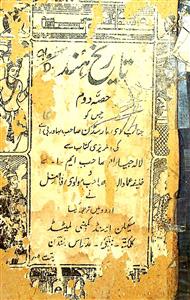 تاریخ ہند
حصہ دوم
جس کو
جناب ای مارسڈن صاحب بہادر بی اے
کی انگریزی کتاب سے
لالہ جیا رام صاحب ایم اے
و
خلیفہ عماد الدین صاحب مولوی فاضل
نے
اردو میں ترجمہ کیا
میکملن اینڈ کمپنی لمیٹڈ
کلکتہ - بمبئی - مدراس - لندن